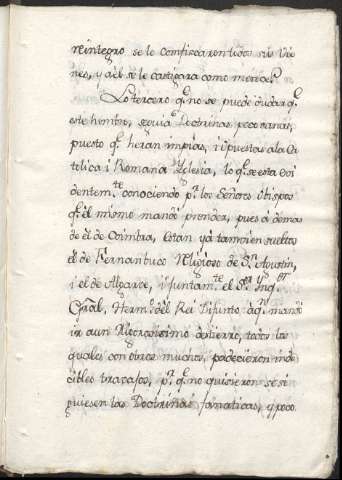 reintegro se le confiscaron todos sus Vie
nes, y a él se le castigara como merece.
Lo tercero q.e no se puede dudar q.e
este hombre, seguia Doctrinas poco sanas,
puesto q.e heran impias, i opuestas a la Ca
tolica i Romana Yglesia, lo q.e se esta evi
dentem.te conociendo p.r los Señores Obispos
q.e él mismo mandó prender, pues a demas
de él de Coimbra, estan yá tamvien sueltos
el de Fernanbuco Religioso de S.n Agustin,
i el de Algarve, i juntam.te el S.or Ynq.or
Gràl, Herm.o del Rei Difunto a q.n mandó
ir a un rigorosisimo destierro, todos los
quales con otros muchos, padecieron inde
cibles travajos, p.r q.e no quisieron se si
guiesen las Doctrinas fanaticas, y poco